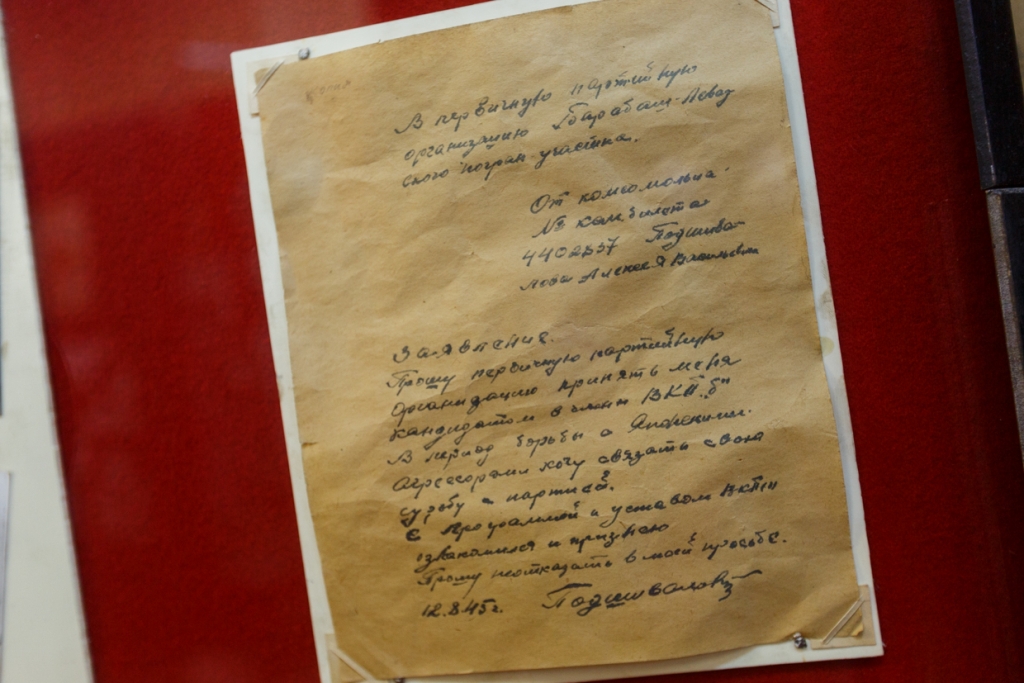 В первичную партийную
организацию Барабаш-Левад
ского погран участка.
От комсомольца
№ комбилета
4402537 Подшива
лова Алексея Васильевича
Заявление.
Прошу первичную партийную
Организацию принять меня
кандидатом в члены ВКП"б"
В период борьбы с Японскими
агрессорами хочу связать свою
судьбу с партией.
С Програмой и уставом ВКП"
ознакомился и признаю
Прошу неотказать в моей просьбе.
12.8.45г. Подшивалов